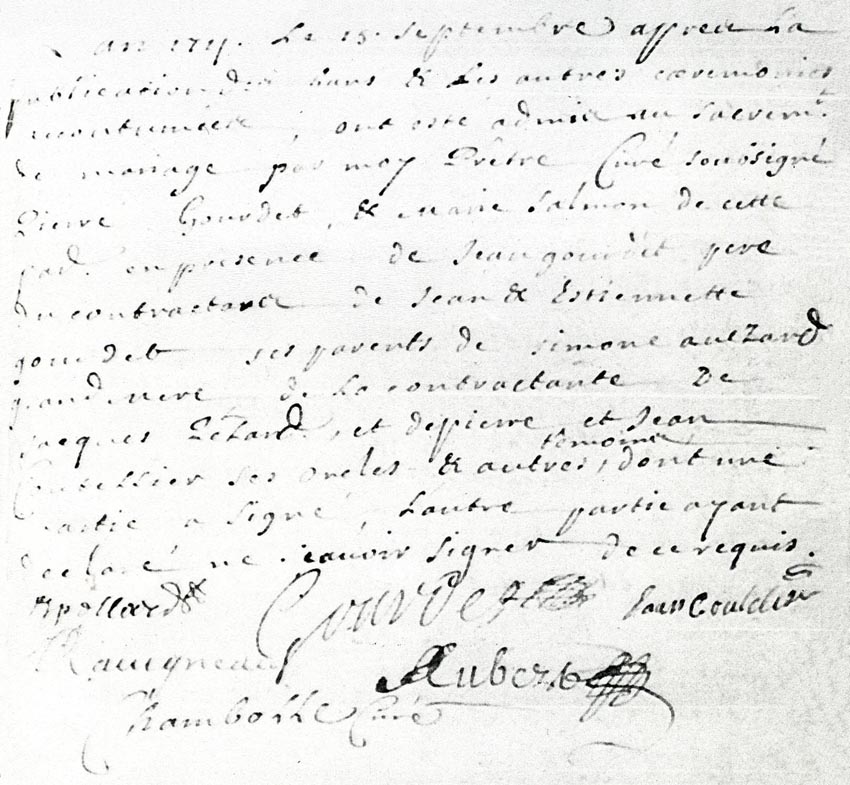 L an 1711. Le 15. Septembre apprez La
publication des bans & Les autres ceremonies
accoutumées, ont esté admis au Sacrem.t
de mariage par moy Prêtre Curé soussigné
Pierre Gourdet, & Marie Salmon de cette
par. en presence de Jean gourdet pere
du contractant de Jean & Estiennette
gourdet ses parents de Simone auezard
grandmere de La contractante De
Jacques et de pierre et Jean
ses oncles & autres temoins, dont une
partie a Signé, Lautre partie ayant
declaré ne scavoir signer de ce requis.
Gourdet Jean
Aubert
Curé